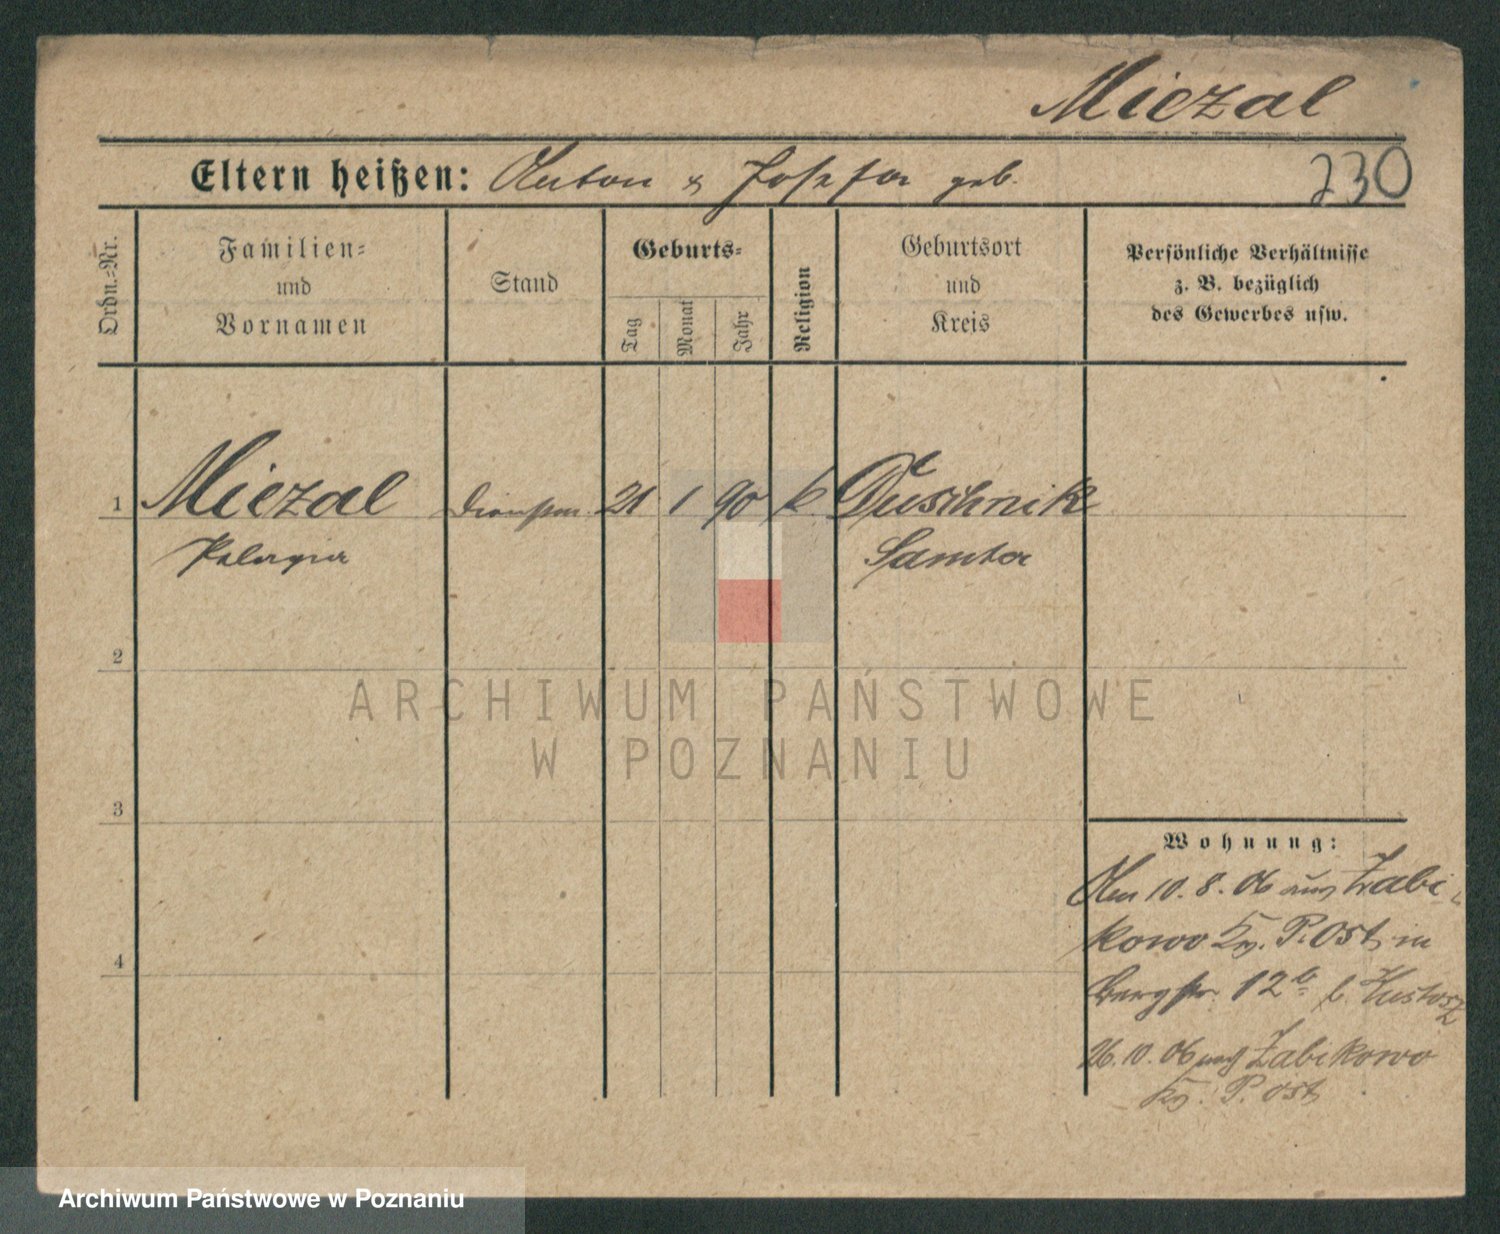 Miezal
Eltern heißen: Anton & Josefa geb.
230
Ordn.-Nr.
Familien-
und
Vornamen
Stand
Geburts-
Tag
Monat
Jahr
Religion
Geburtsort
und
Kreis
Persönliche Verhältnisse
z. B. bezüglich
des Gewerbes usw.
1 Miezal Dienstm. 21 1 90 k. Duschnik
Pelagia Samter
2
ARCHIWUM PAŃSTWOWE
W POZNANIU
3
Wohnung:
Am 10.8.06 aus Zabi-
kowo Kr. P. Ost, in
Bergstr. 12b b. Kustosz
4
26.10.06 nach Zabikowo
Kr. P. Ost
Archiwum Państwowe w Poznaniu